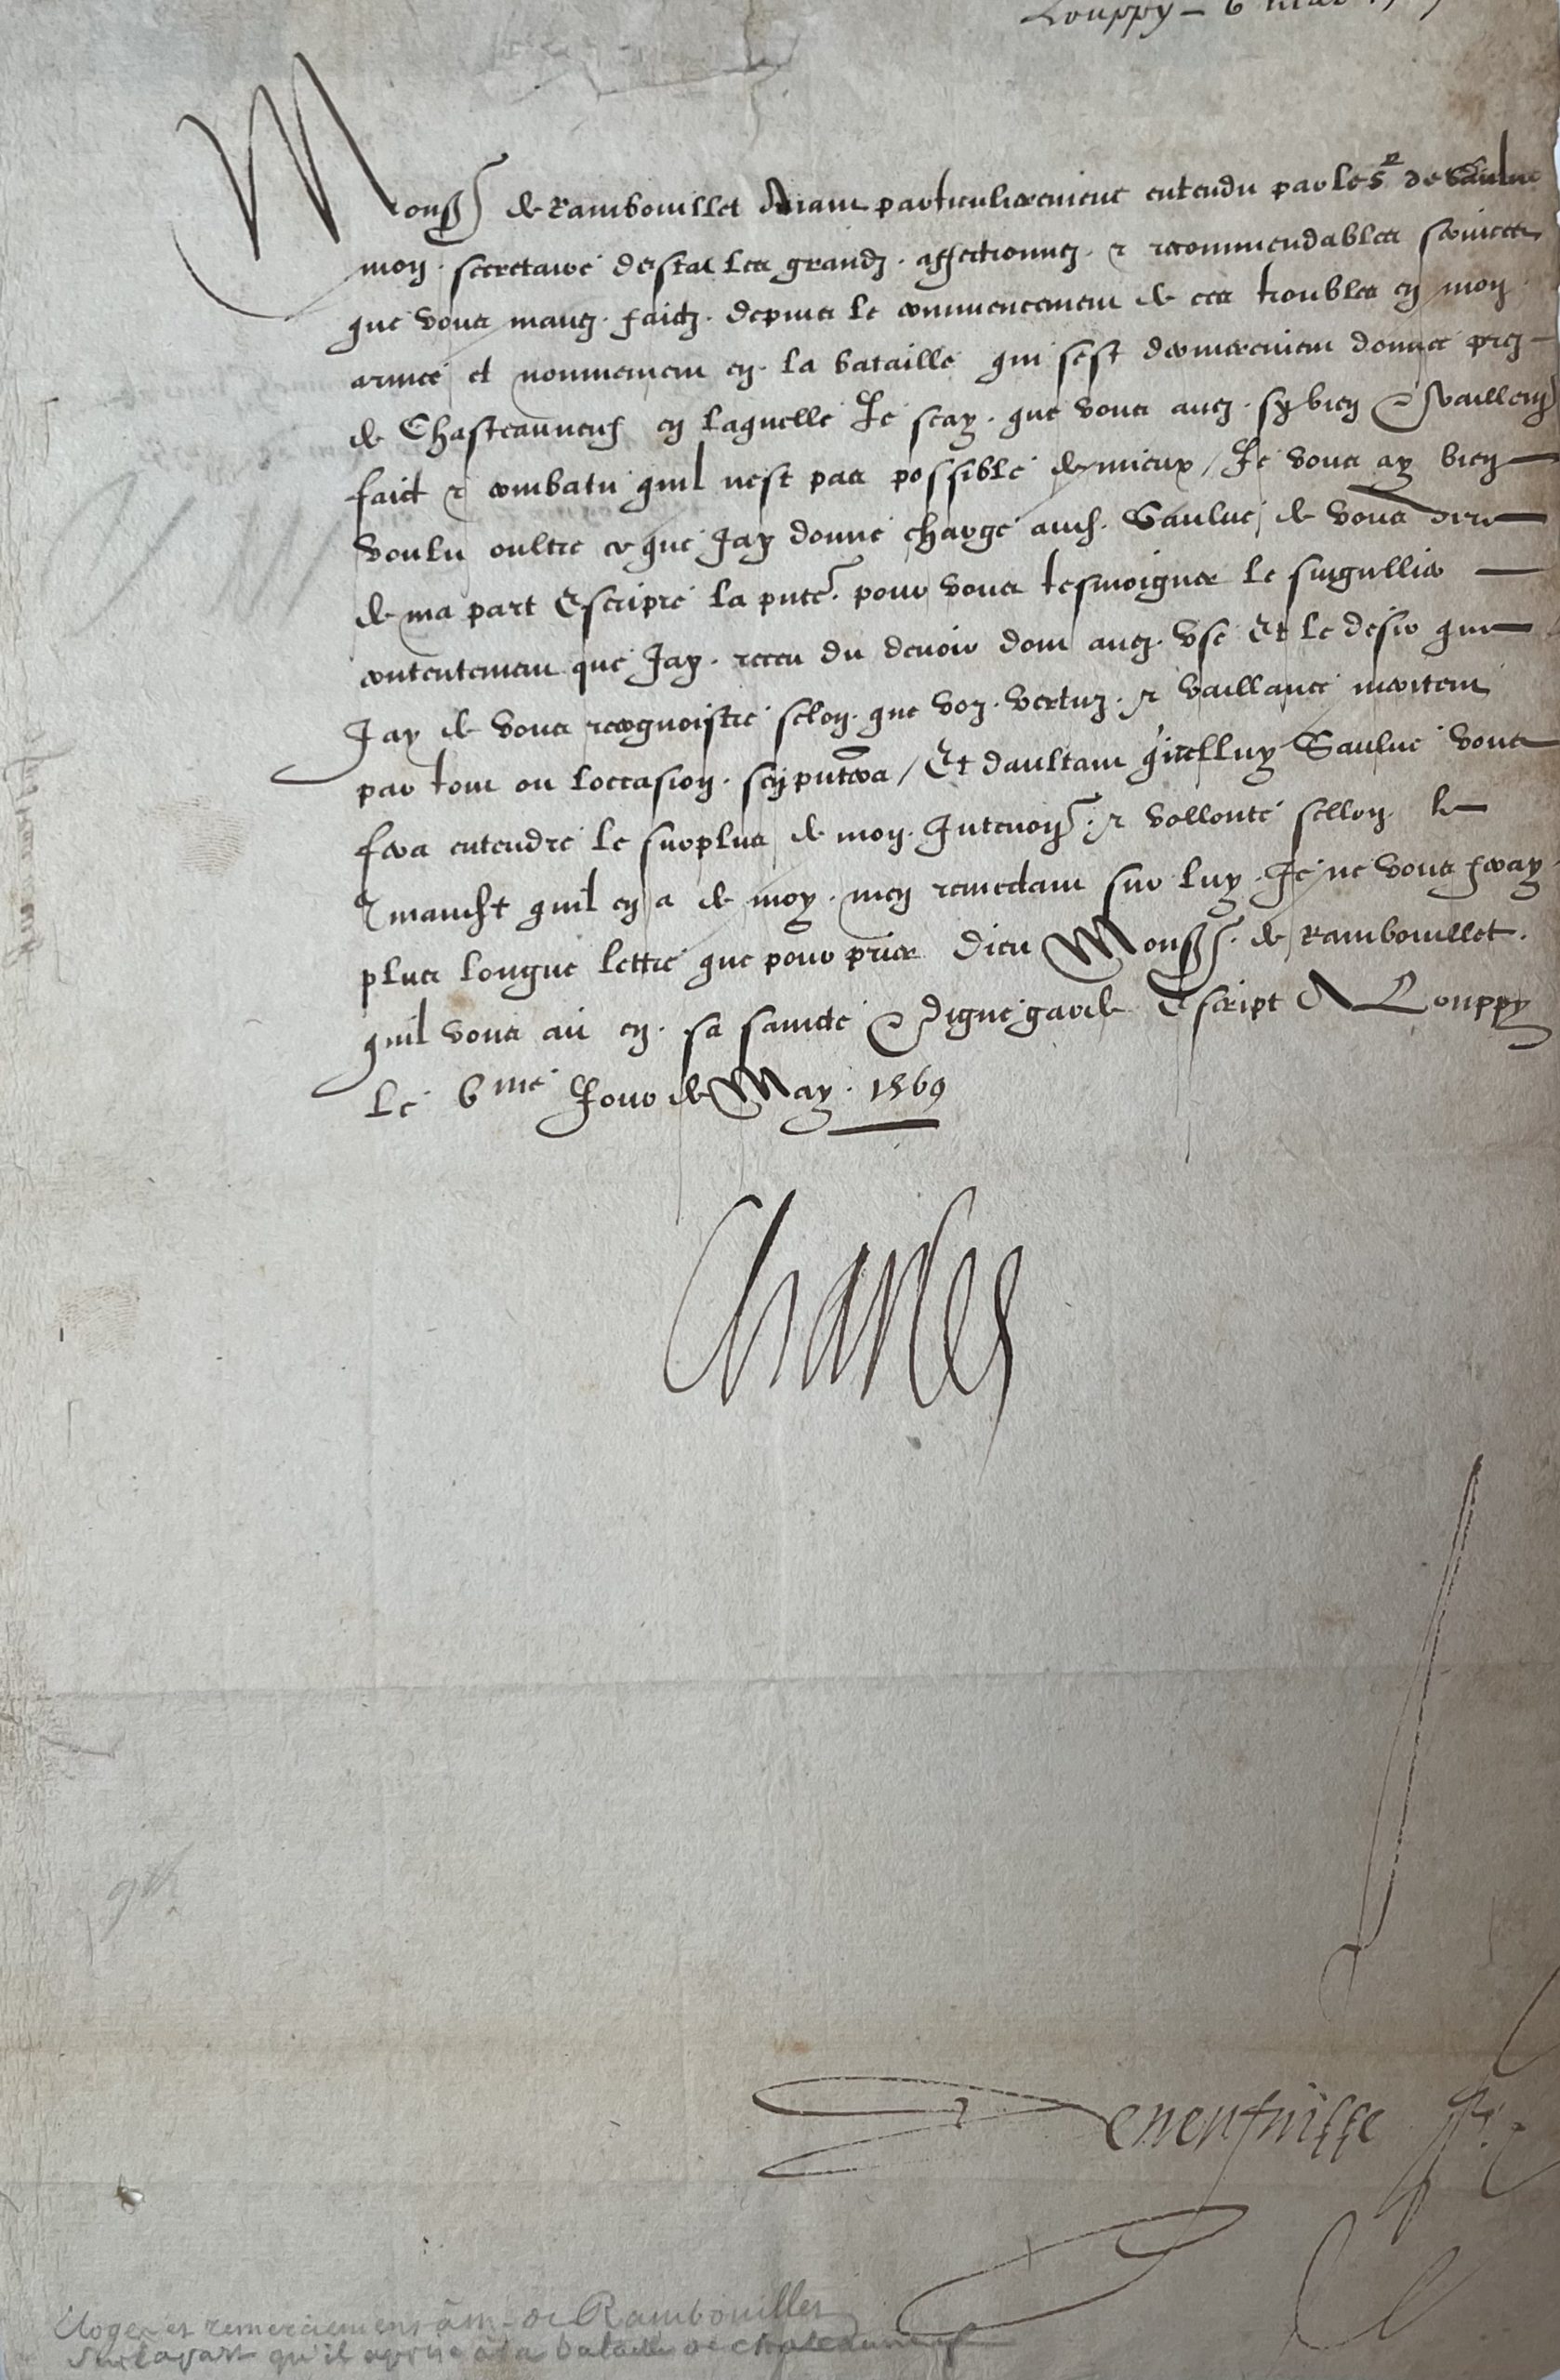 Louppy – 6 mai
Monsr de Rambouillet Aiant particulierement entendu par le Sr de Saulve
mon secretaire destat les grandz affectionnez & recommendables services
que vous mavez faictz depuis le commencement de ces troubles en mon
armee et nommement en la bataille qui sest dernierement donnee prez
de Chasteauneuf en laquelle Je scay que vous avez sy bien & vaillemt
faict & combatu quil nest pas possible de mieux / Je vous ay bien
voulu oultre ce que Jay donné charge aud. Saulve de vous dire
de ma part Escripre la pnte pour vous tesmoigner le singullier
contentement que Jay receu du devoir dont avez usé Et le desir que
Jay de vous recognoistre selon que voz vertuz & vaillance meritent
par tout ou loccasion sen pntera / Et daultant quicelluy Saulve vous
fera entendre le surplus de mon Intention & vollonté sellon le
mand quil en a de moy men remectant sur luy Je ne vous feray
plus longue lettre que pour prier Dieu Monsr de Rambouillet
quil vous ait en sa saincte & digne garde Escript A Louppy
Le 6me Jour de May 1569
Charles
Deneufville
Eloges et remerciemens à m. de Rambouillet
sur la part qu'il a prise à la bataille de chateauneuf